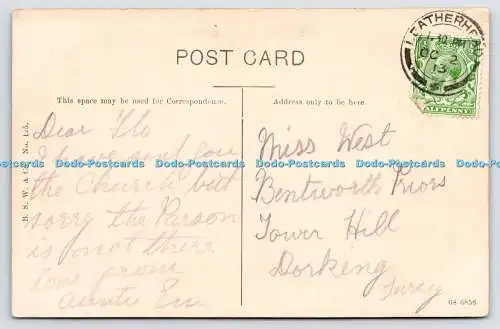 POST CARD
This space may be used for Correspondence.
Address only to be here
LEATHERHEAD
1.30 PM
OC 2
13
HALFPENNY
Dear Flo
I have send you
the Church but
sorry the Parson
is not there
love from
Auntie Em
Miss West
Bentworth Priors
Tower Hill
Dorking
Surrey
B. S. W. & Co. No. 1
G8 6856
Dodo-Postcards Dodo-Postcards Dodo-Postcards Dodo-Postcards Dodo-Postcards